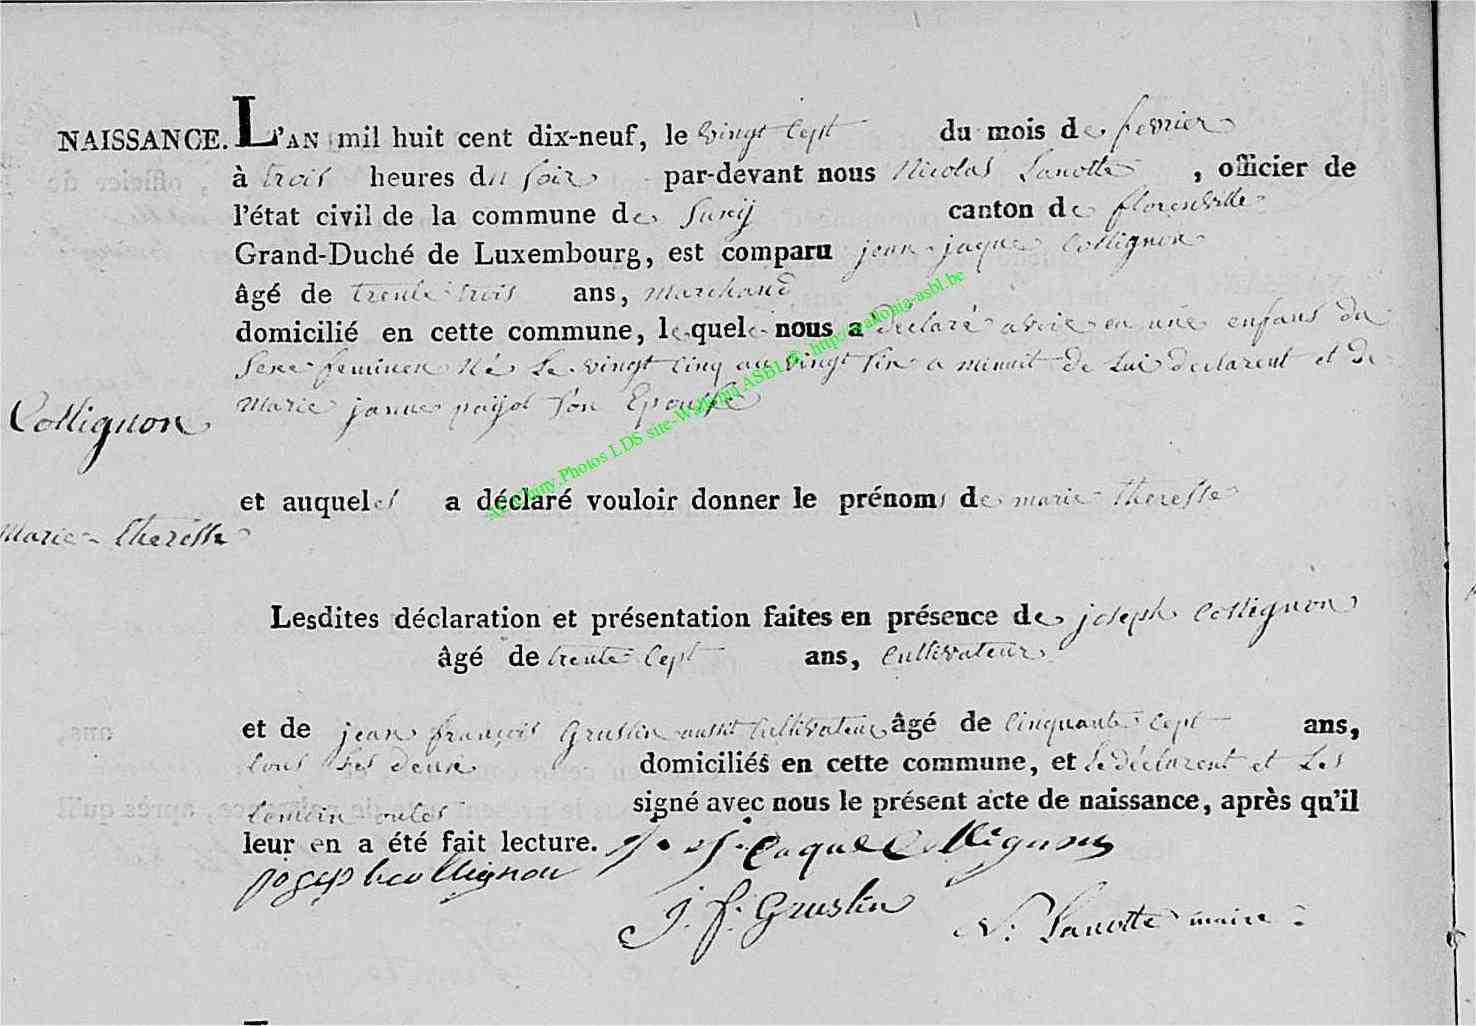 NAISSANCE. L'AN mil huit cent dix-neuf, le vingt Cept du mois de fevrier
à trois heures du soir par-devant nous Nicolas Lanotte , officier de
l'état civil de la commune de Suxÿ canton de florenville
Grand-Duché de Luxembourg, est comparu jean jaque Collignon
âgé de trente trois ans, marchand
domicilié en cette commune, lequel nous a declaré avoir eu une enfans du
Sexe feminen Né Le vingt Cinq au vingt Six a minuit de Lui declarent et de
Collignon
Marie janne payot Son Epousse
et auquel a déclaré vouloir donner le prénoms de marie theresse
Marie - theresse
Lesdites déclaration et présentation faites en présence de joseph Collignon
âgé de trente Cept ans, Cultivateur
et de jean françois Gruslin aussit Cultivateur âgé de Cinquante Cept ans,
tous Les deux domiciliés en cette commune, et Le déclarent et Les
temoin signé avec nous le présent acte de naissance, après qu'il
leur en a été fait lecture. J. J. Caque Collignon
josep h collignon
J. f. Gruslin N. Lanotte maire
St-Photos LDS site-Wallonia ASBL © http://wallonia-asbl.be